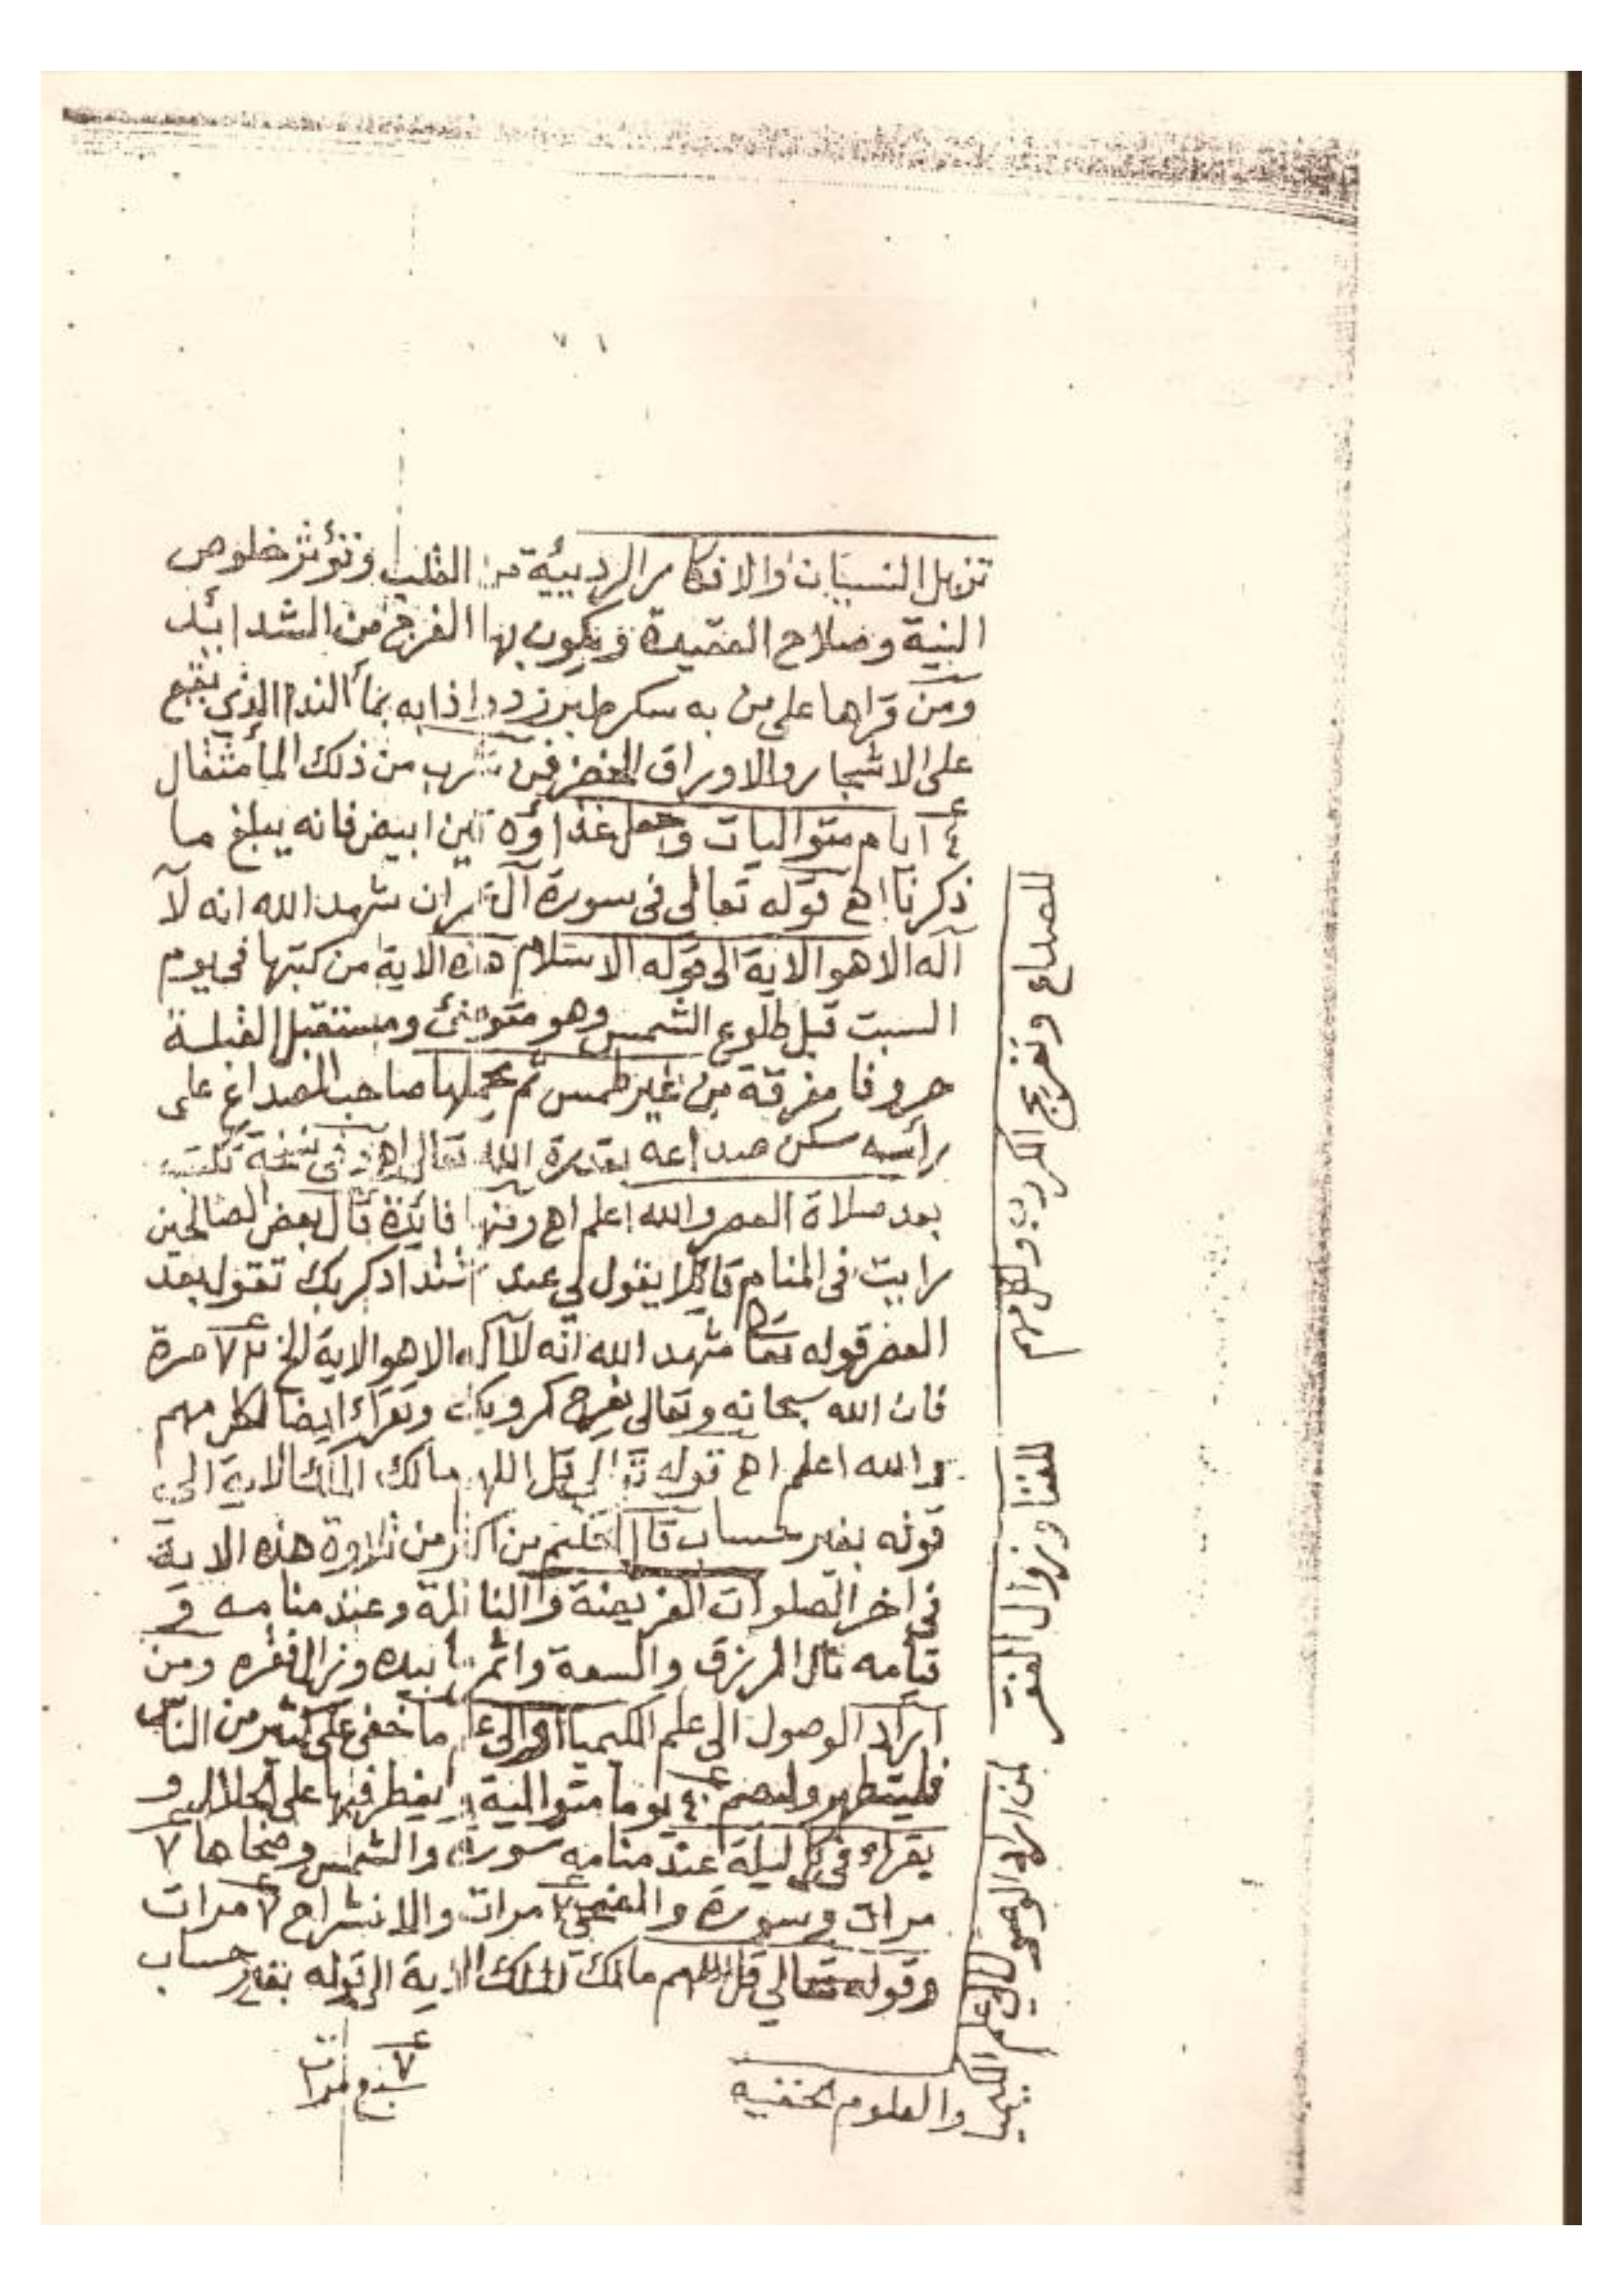 تزيل النسيان والافكار الرديئة من القلب وتؤثر خلوص
النية وصلاح العقيدة ويكون بها الفرج من الشدائد
ومن قراها على من به سكر طبرزد واذابه بمأ الندا الذي يقع
على الاشجار والاوراق الخضر فمن شرب من ذلك المأ مثقال
٤ ايام متواليات وجعل غذاؤه تين ابيض فانه يبلغ ما
ذكرنا اهـ قوله تعالى في سورة آل عمران شهد الله انه لآ
آله الا هو الاية الى قوله الاسلام هذه الاية من كتبها في يوم
السبت قبل طلوع الشمس وهو متوضئ ومستقبل القبلة
حروفا مفرقة من غير طمس ثم يحملها صاحب الصداع على
رأسه سكن صداعه بقدرة الله تعالى اهـ وفي نسخة تكتب
بعد صلاة العصر والله اعلم اهـ ومنها فائدة قال بعض الصالحين
رايت في المنام قائلا يقول لي عند اشتداد كربك تقول بعد
العصر قوله تعا شهد الله انه لآ آله الا هو الاية الخ مرة
فان الله سبحانه وتعالى يفرج كروبك وتقراء ايضا لكل مهم
والله اعلم اهـ قوله تعالى قل اللهم مالك الملك الاية الى
قوله بغير حساب قال الحكيم من اكثر من تلاوة هذه الاية
في اخر الصلوات الفريضة والنافلة وعند منامه و
قيامه نال الرزق والسعة وزال فقره ومن
اراد الوصول الى علم الكيميا او الى علم ما خفي على كثير من الناس
فليتطهر وليصم ٤٠ يوما متوالية يفطر فيها على الحلال و
يقراء في كل ليلة عند منامه سورة والشمس وضحاها ٧
مرات وسورة والضحى ٧ مرات والانشراح ٧ مرات
وقوله تعالي قل اللهم مالك الملك الاية الى قوله بغير حساب
٧ سبع مرات
للصداع وتفريج الكروب ولكل مهم
للغنا وزوال الفقر
لمن اراد الوصول الى علم الكيميا
والعلوم الخفيه